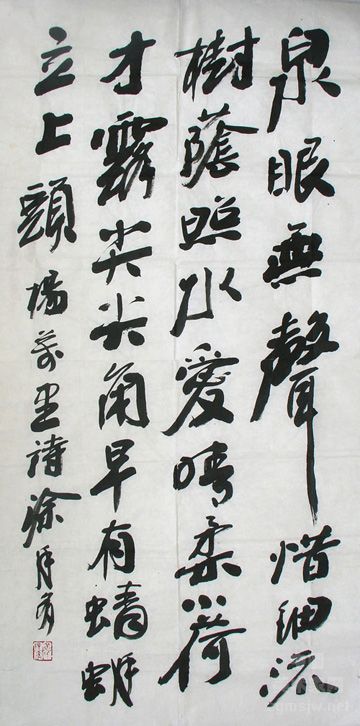 泉眼無聲惜細流
樹蔭照水愛晴柔小荷
才露尖尖角早有蜻蜓
立上頭 楊萬里詩 徐